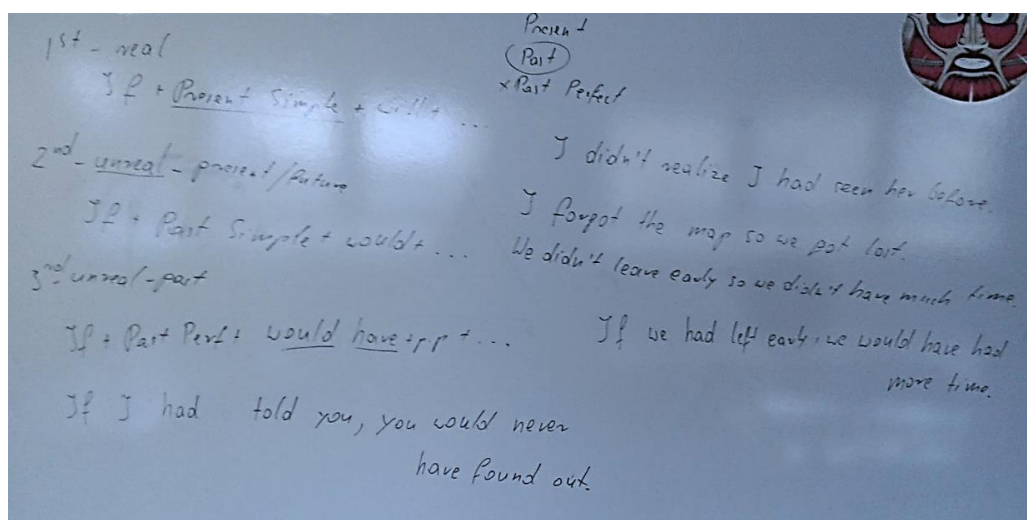 1st - real
If + Present Simple + will + ...
2nd - unreal - present/future
If + Past Simple + would + ...
3rd unreal - past
If + Past Perf + would have + p.p + ...
If I had told you, you would never
have found out.
Present
Past
x Past Perfect
I didn't realize I had seen her before.
I forgot the map so we got lost.
We didn't leave early so we didn't have much time.
If we had left early, we would have had
more time.